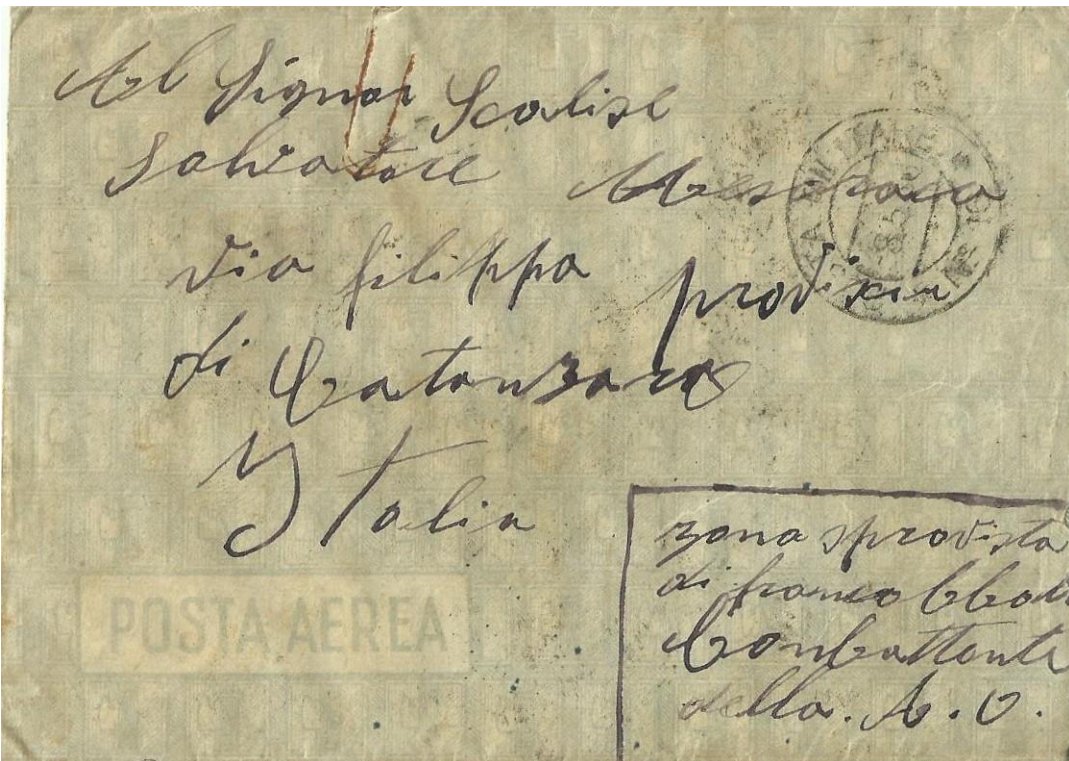 Al Signor Scalise
Salvatore Mesoraca
Via filippa provincia
di Catanzaro
Italia
POSTA AEREA
zona sprovista
di franco bboli
Combattente
della. A. O.